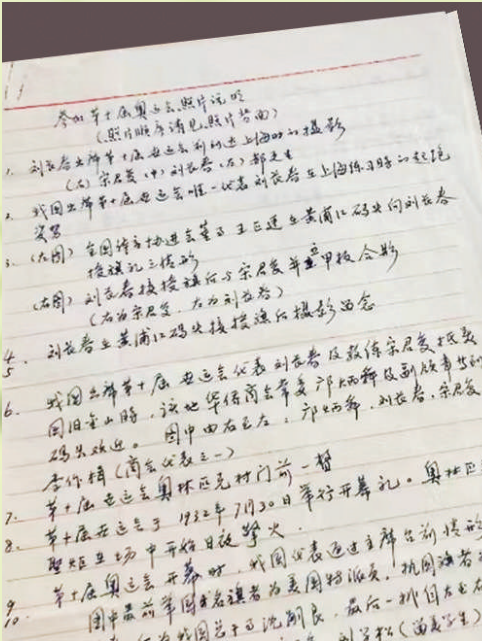 参加第十届奥运会照片说明
(照片顺序请见照片背面)
1. 刘长春出席第十届世运会前到达上海时的摄影
(右)宋君复(中)刘长春(左)郝更生
2. 我国出席第十届世运会唯一代表刘长春在上海练习时的起跑
姿势
3. (左图)全国体育协进会董事王正廷在黄浦江码头向刘长春
授旗礼之情形
(右图)刘长春接授旗后与宋君复并立甲板合影
(右为宋君复,左为刘长春)
4. 刘长春在黄浦江码头接授旗后摄影留念
5.
6. 我国出席第十届世运会代表刘长春及教练宋君复抵美
国旧金山时,该地华侨商会常委邝炳舜及副领事
码头欢迎。图中由右至左,邝炳舜,刘长春,宋君复
李作楫(商会代表之一)
7. 第十届世运会奥林匹克村门前一瞥
8. 第十届世运会于1932年7月30日举行开幕礼。奥林匹
圣炬在场中开始日夜擎火
9. 第十届奥运会开幕时,我国代表通过主席台前情形
10. 图中最前举国名旗者为美国特派员,执国旗者
为我国总干事沈嗣良,最后一排自左至右
刘雪松(留美学生)